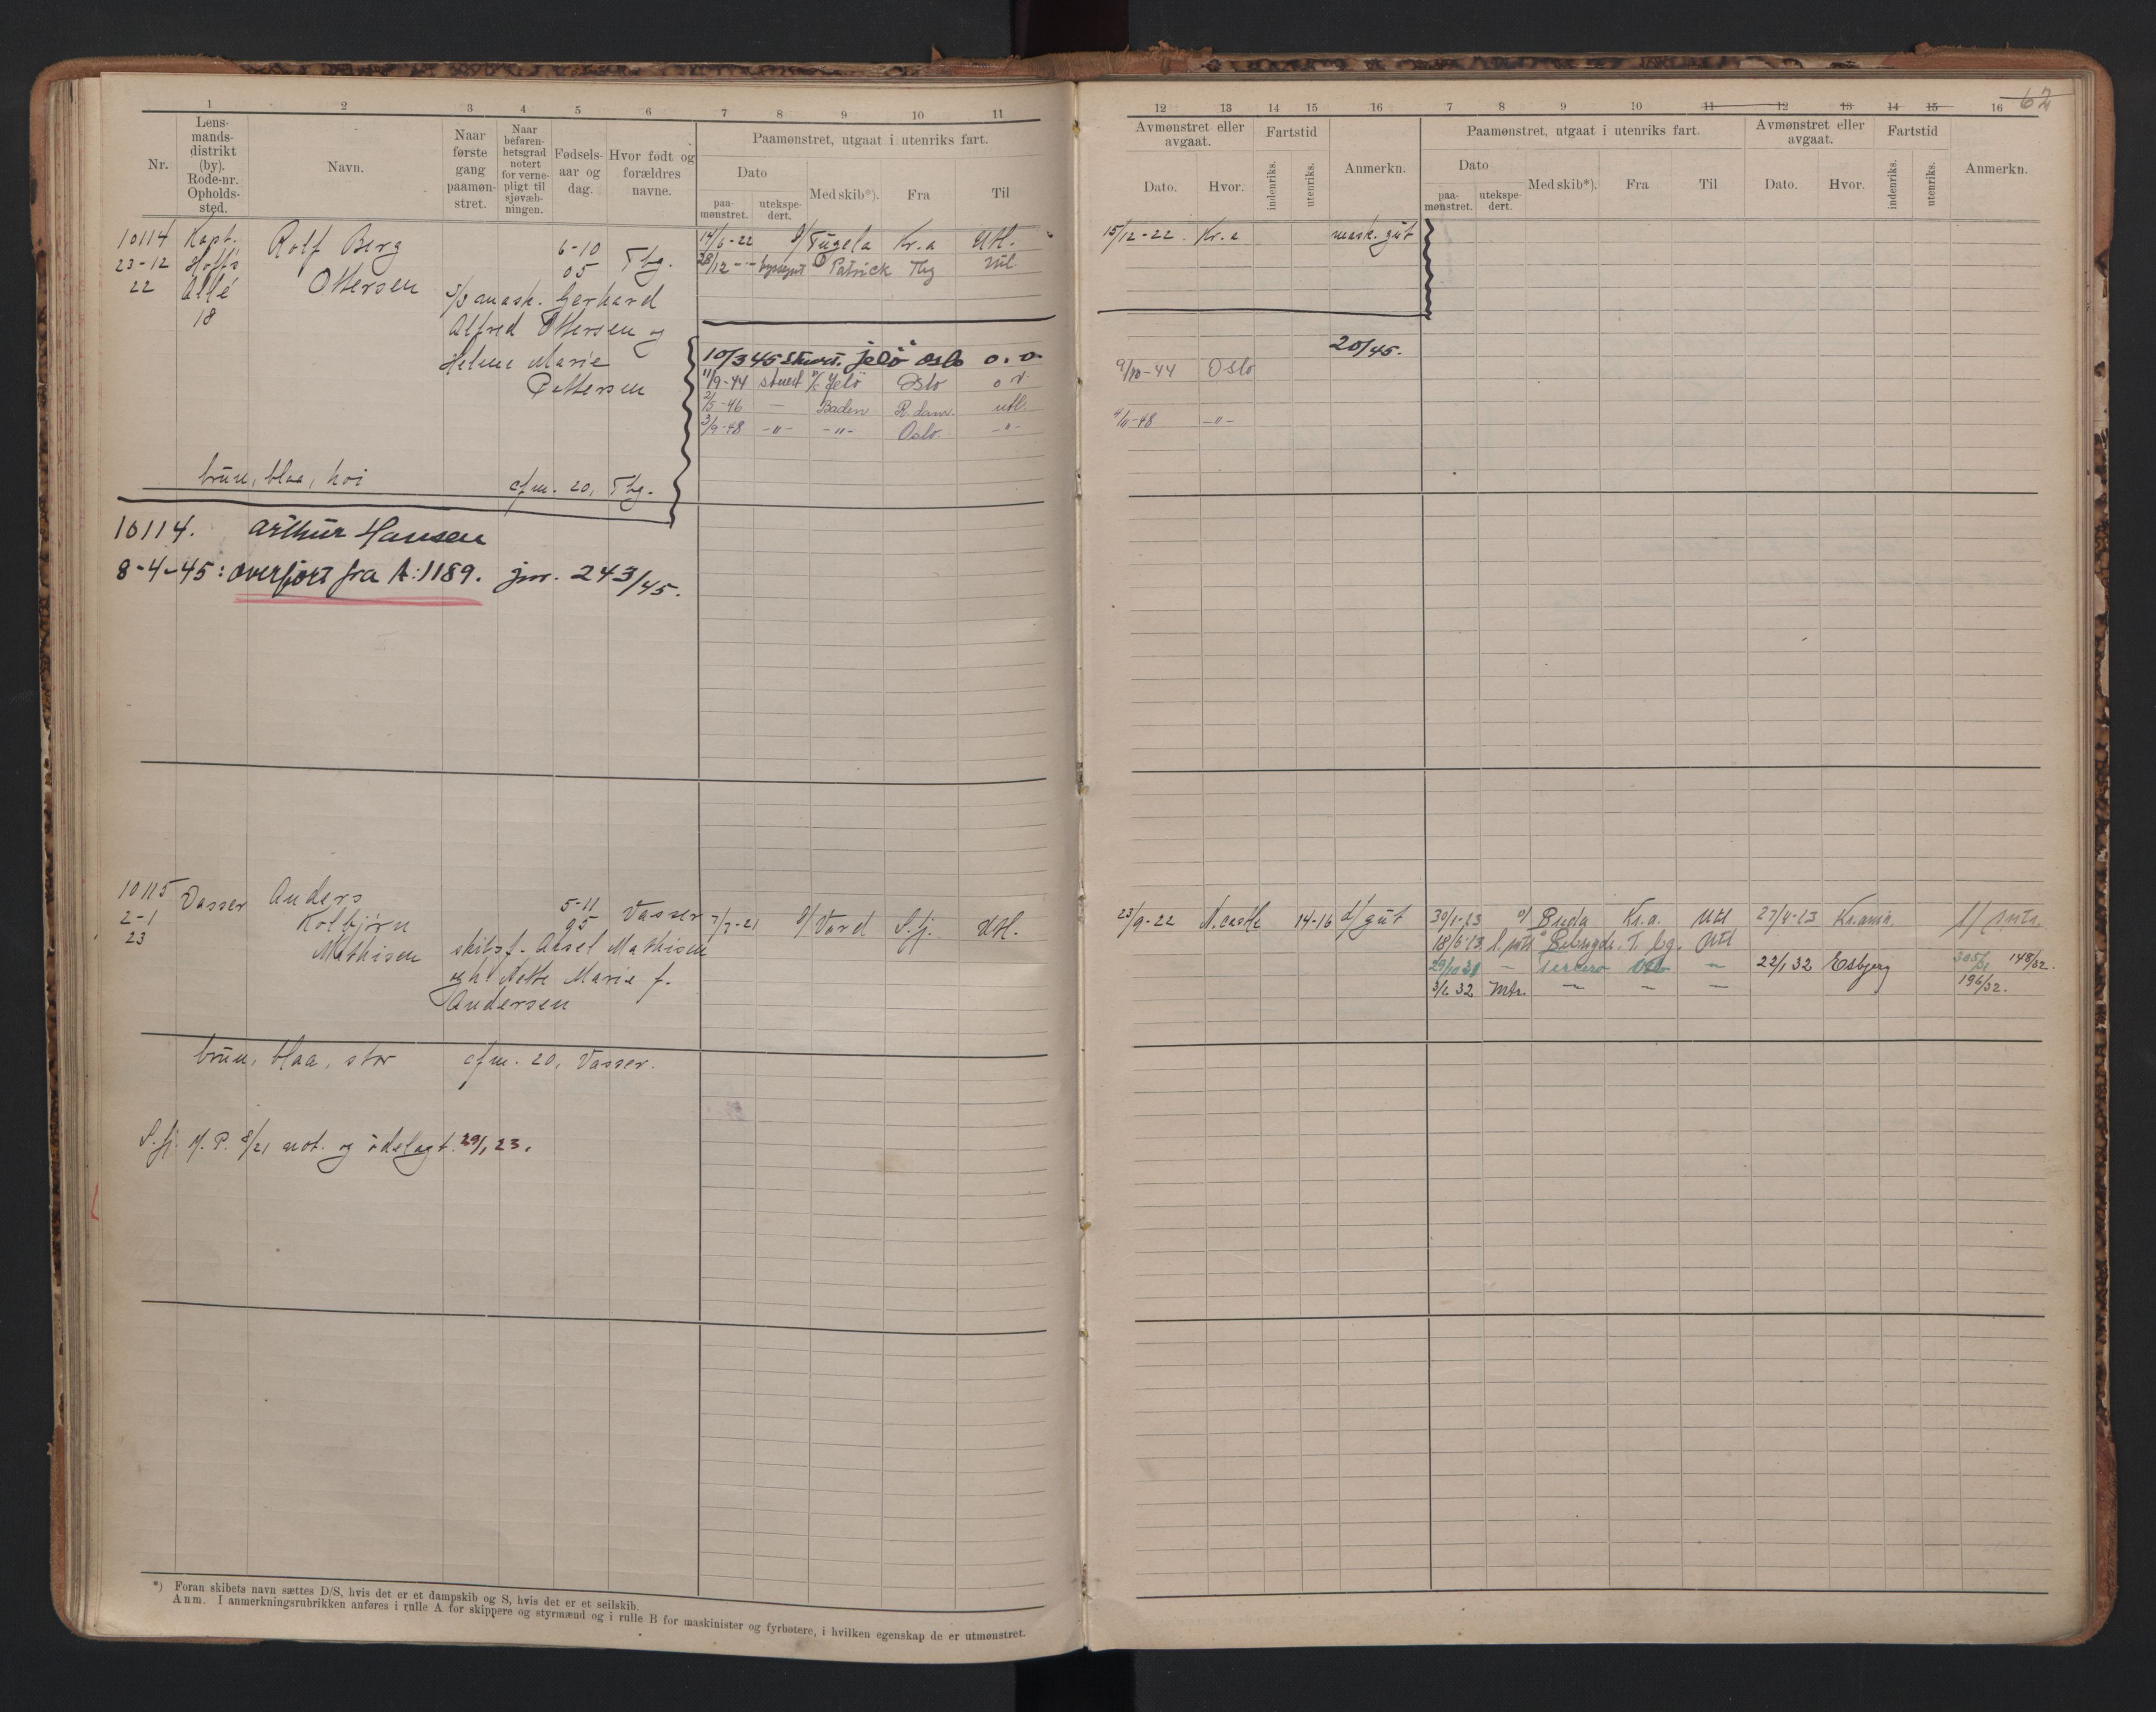 1 2 3 4 5 6 7 8 9 10 11
Nr.
Lens-
mands-
distrikt
(by).
Rode-nr.
Opholds-
sted.
Navn.
Naar
første
gang
paamøn-
stret.
Naar
befaren-
hetsgrad
notert
for verne-
pligt til
sjøvæb-
ningen.
Fødsels-
aar og
dag.
Hvor født og
forældres
navne.
Paamønstret, utgaat i utenriks fart.
Dato
paa-
mønstret.
utekspe-
dert.
Med skib*).
Fra
Til
10114 Kapt. Rolf Berg 6-10 14/6-22 Tugela Kr.a Utl.
23-12 Hoffs 05 Tbg. 28/12 Patrick Tbg Utl.
22 Allé Ottersen mask. Gerhard
18 Alfred Ottersen og
Helene Marie 10/3 45 Stuert. Jelö Oslo
Pettersen 11/9-44 stuert Jelö Oslo
2/5-46 — Baden R.dam. utl.
3/9-48 -"- -"- Oslo. -"-
brun, blaa, høi cfm. 20, Tbg.
10114. Arthur Hansen
8-4-45: overført fra A:1189. jnr. 243/45.
10115 Vasser Anders 5-11
2-1 Kolbjørn 95 Vasser 7/7-21 Vard S.fj. Utl.
23 Mathisen skibsf. Axel Mathisen
og h. Nette Marie f.
Andersen
brun, blaa, stor cfm. 20, Vasser.
S.fj. M.P. 8/21 not. og ødelagt. 29/1 23.
*) Foran skibets navn sættes D/S, hvis det er et dampskib og S, hvis det er et seilskib.
Anm. I anmerkningsrubrikken anføres i rulle A for skippere og styrmænd og i rulle B for maskinister og fyrbøtere, i hvilken egenskap de er utmønstret.
12 13 14 15 16 7 8 9 10 11 12 13 14 15 16 62
Avmønstret eller
avgaat.
Fartstid
Anmerkn.
Dato.
Hvor.
indenriks.
utenriks.
Paamønstret, utgaat i utenriks fart.
Dato
paa-
mønstret.
utekspe-
dert.
Med skib*).
Fra
Til
Avmønstret eller
avgaat.
Dato.
Hvor.
Fartstid
indenriks.
utenriks.
Anmerkn.
15/12-22. Kr.a mask. gut
20/45.
9/10-44 Oslo
4/11-48 -"-
23/9-22 N.castle 14-16 d/gut 30/1-23 Kr.a. Utl 27/4-23 Kr.ania.
18/6-23 T.bg. Utl
29/10 31 — Tercero Oslo — 22/1 32 Esbjerg 305/31 148/32.
3/2 32 Mtr. — — — 196/32.